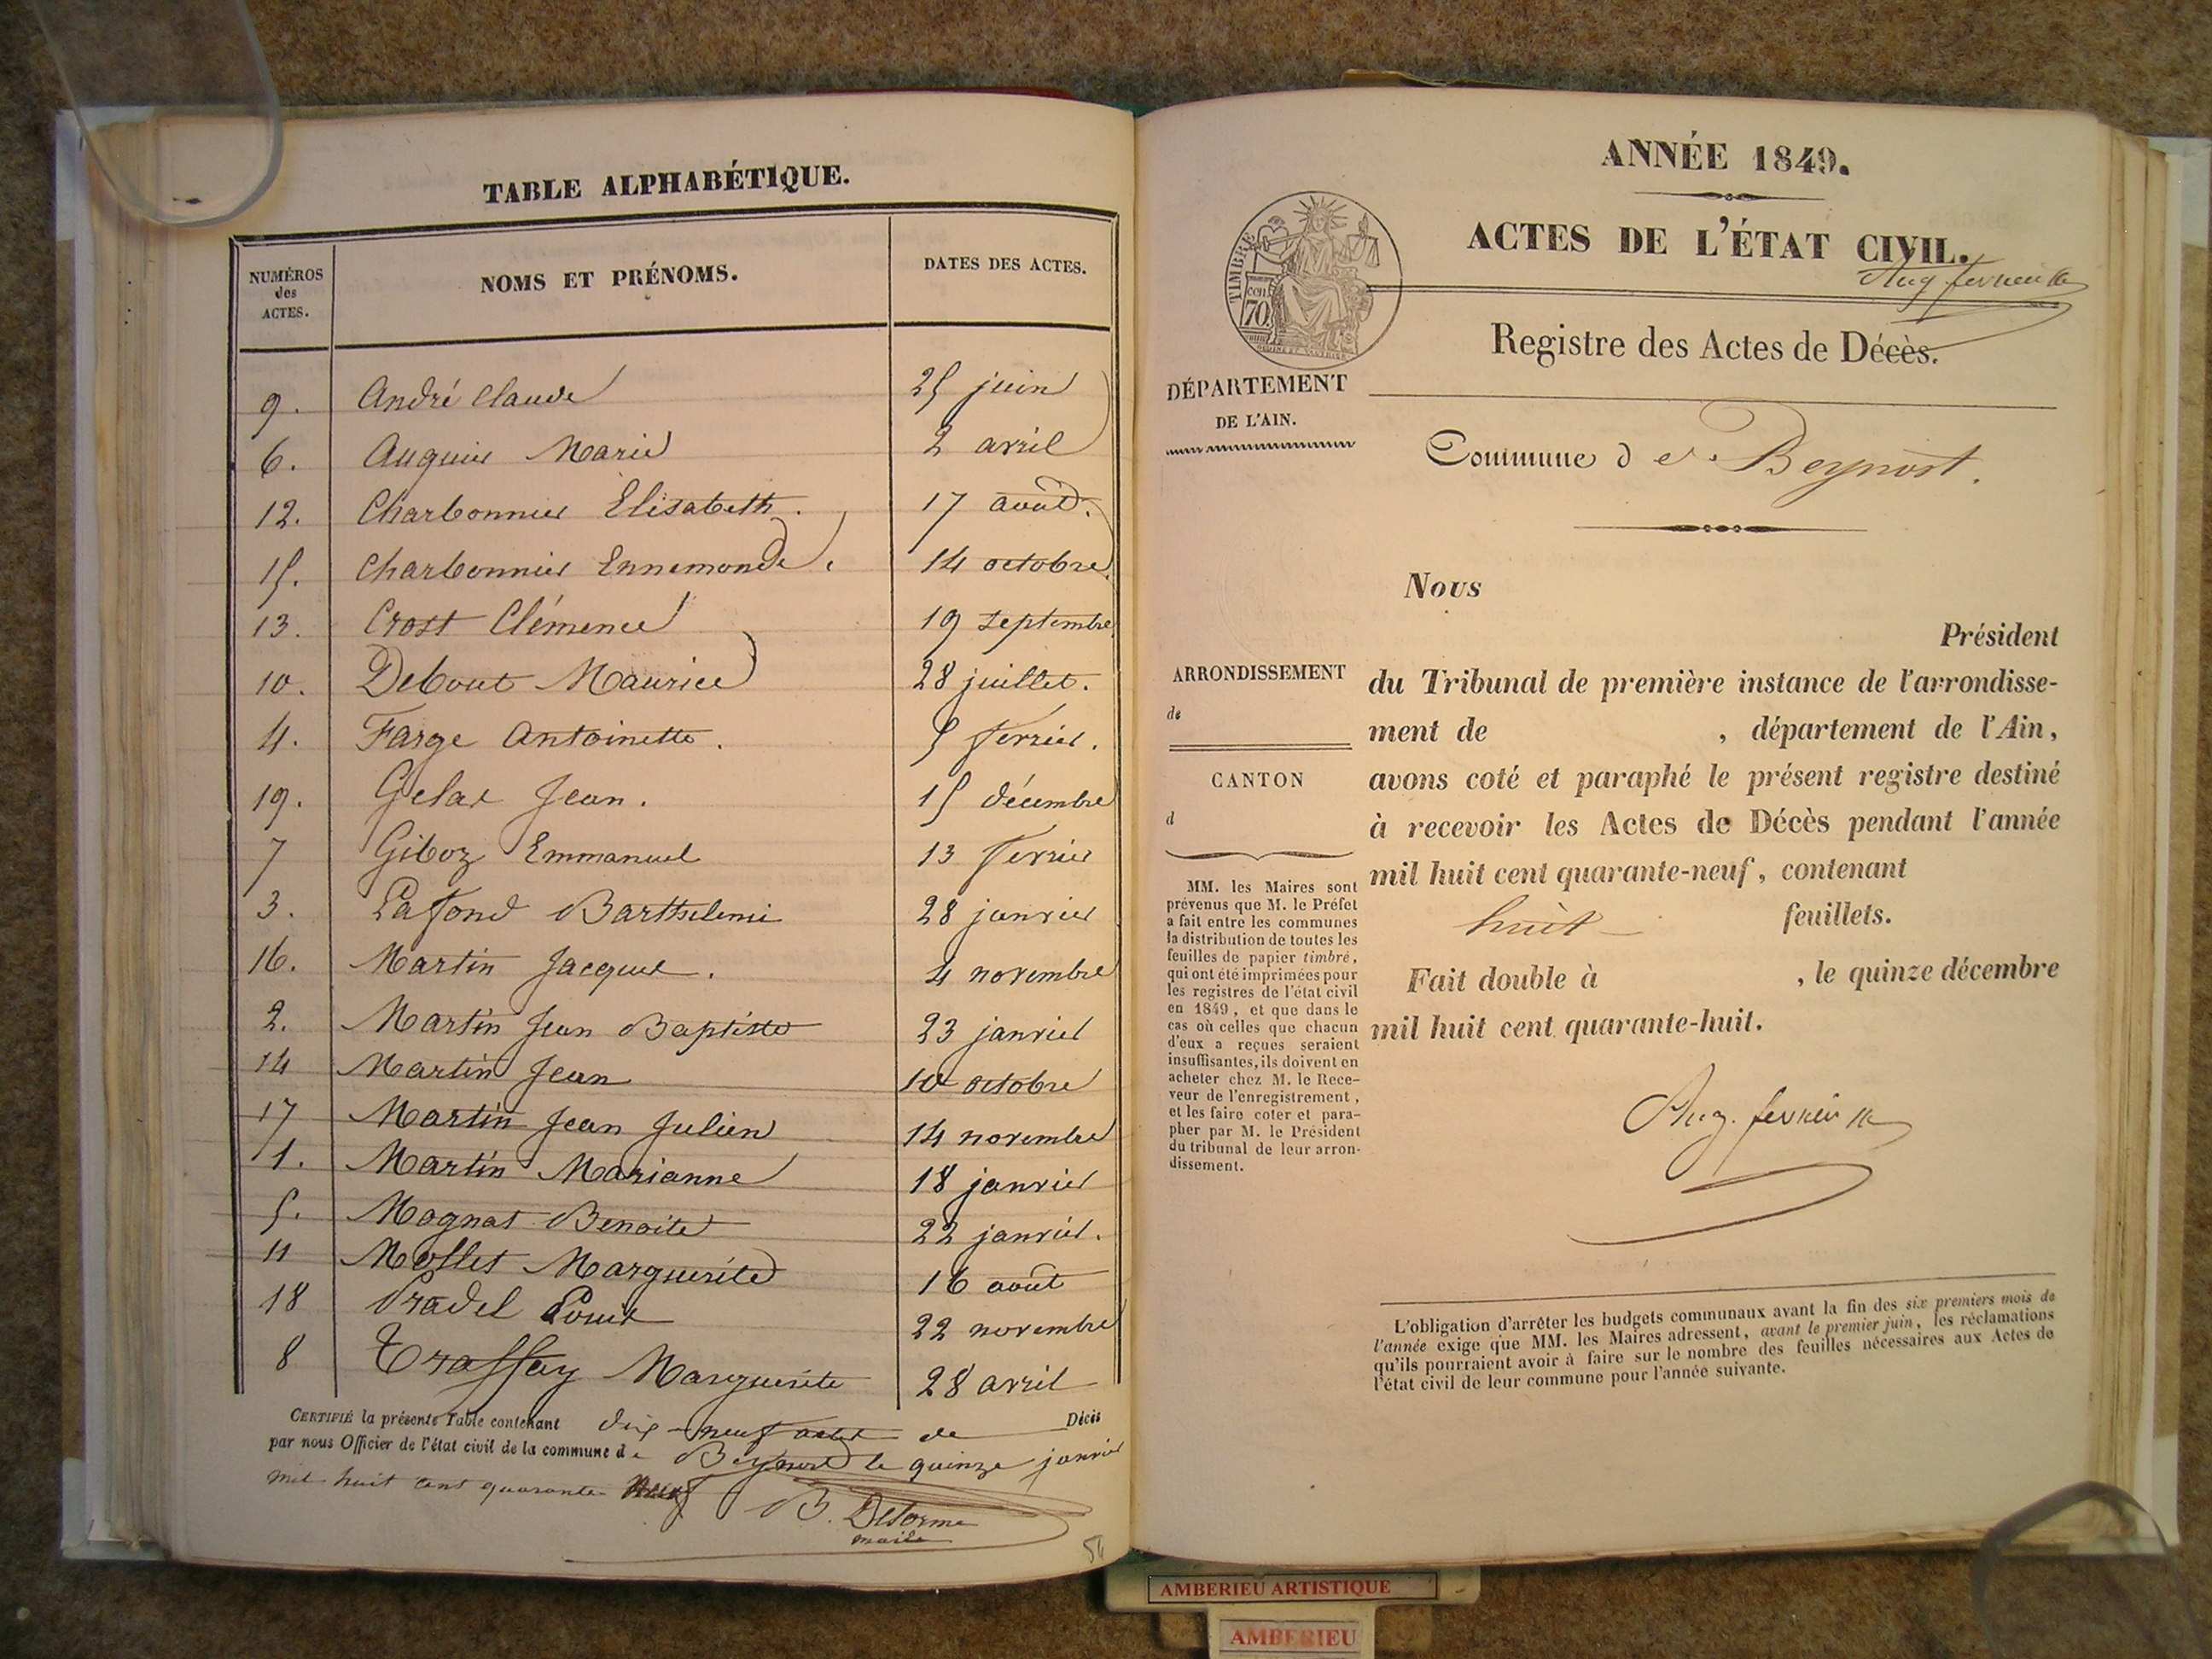 TABLE ALPHABÉTIQUE.
NUMÉROS des ACTES. NOMS ET PRÉNOMS. DATES DES ACTES.
9. André Claude 25 juin
6. Auguier Marie 2 avril
12. Charbonnier Elisabeth. 17 août.
15. Charbonnier Ennemonde. 14 octobre
13. Crost Clémence 19 septembre
10. Debout Maurice 28 juillet.
4. Farge Antoinette. 5 fevrier.
19. Gelas Jean. 15 décembre
7 Giboz Emmanuel 13 fevrier
3. Lafond Barthelemi 28 janvier
16. Martin Jacques. 4 novembre
2. Martin Jean Baptiste 23 janvier
14 Martin Jean 10 octobre
17 Martin Jean Julien 14 novembre
1. Martin Marianne 18 janvier
5. Magnat Benoite 22 janvier.
11 Mollet Marguerite 16 août
18 Pradel Louis 22 novembre
8 Traffay Marguerite 28 avril
CERTIFIÉ la présente Table contenant dix-neuf actes de Décès
par nous Officier de l'état civil de la commune de Beynost le quinze janvier
mil huit cent quarante-neuf
B. Delorme
maire
54
ANNÉE 1849.
ACTES DE L'ÉTAT CIVIL.
TIMBRE
70
Registre des Actes de Décès.
DÉPARTEMENT
DE L'AIN.
Commune de Beynost.
Nous
Président
ARRONDISSEMENT
de
du Tribunal de première instance de l'arrondisse-
ment de , département de l'Ain,
CANTON
d
avons coté et paraphé le présent registre destiné
à recevoir les Actes de Décès pendant l'année
mil huit cent quarante-neuf, contenant
huit feuillets.
Fait double à , le quinze décembre
mil huit cent quarante-huit.
MM. les Maires sont
prévenus que M. le Préfet
a fait entre les communes
la distribution de toutes les
feuilles de papier timbré,
qui ont été imprimées pour
les registres de l'état civil
en 1849, et que dans le
cas où celles que chacun
d'eux a reçues seraient
insuffisantes, ils doivent en
acheter chez M. le Rece-
veur de l'enregistrement,
et les faire coter et para-
pher par M. le Président
du tribunal de leur arron-
dissement.
L'obligation d'arrêter les budgets communaux avant la fin des six premiers mois de
l'année exige que MM. les Maires adressent, avant le premier juin, les réclamations
qu'ils pourraient avoir à faire sur le nombre des feuilles nécessaires aux Actes de
l'état civil de leur commune pour l'année suivante.
AMBERIEU ARTISTIQUE
AMBERIEU